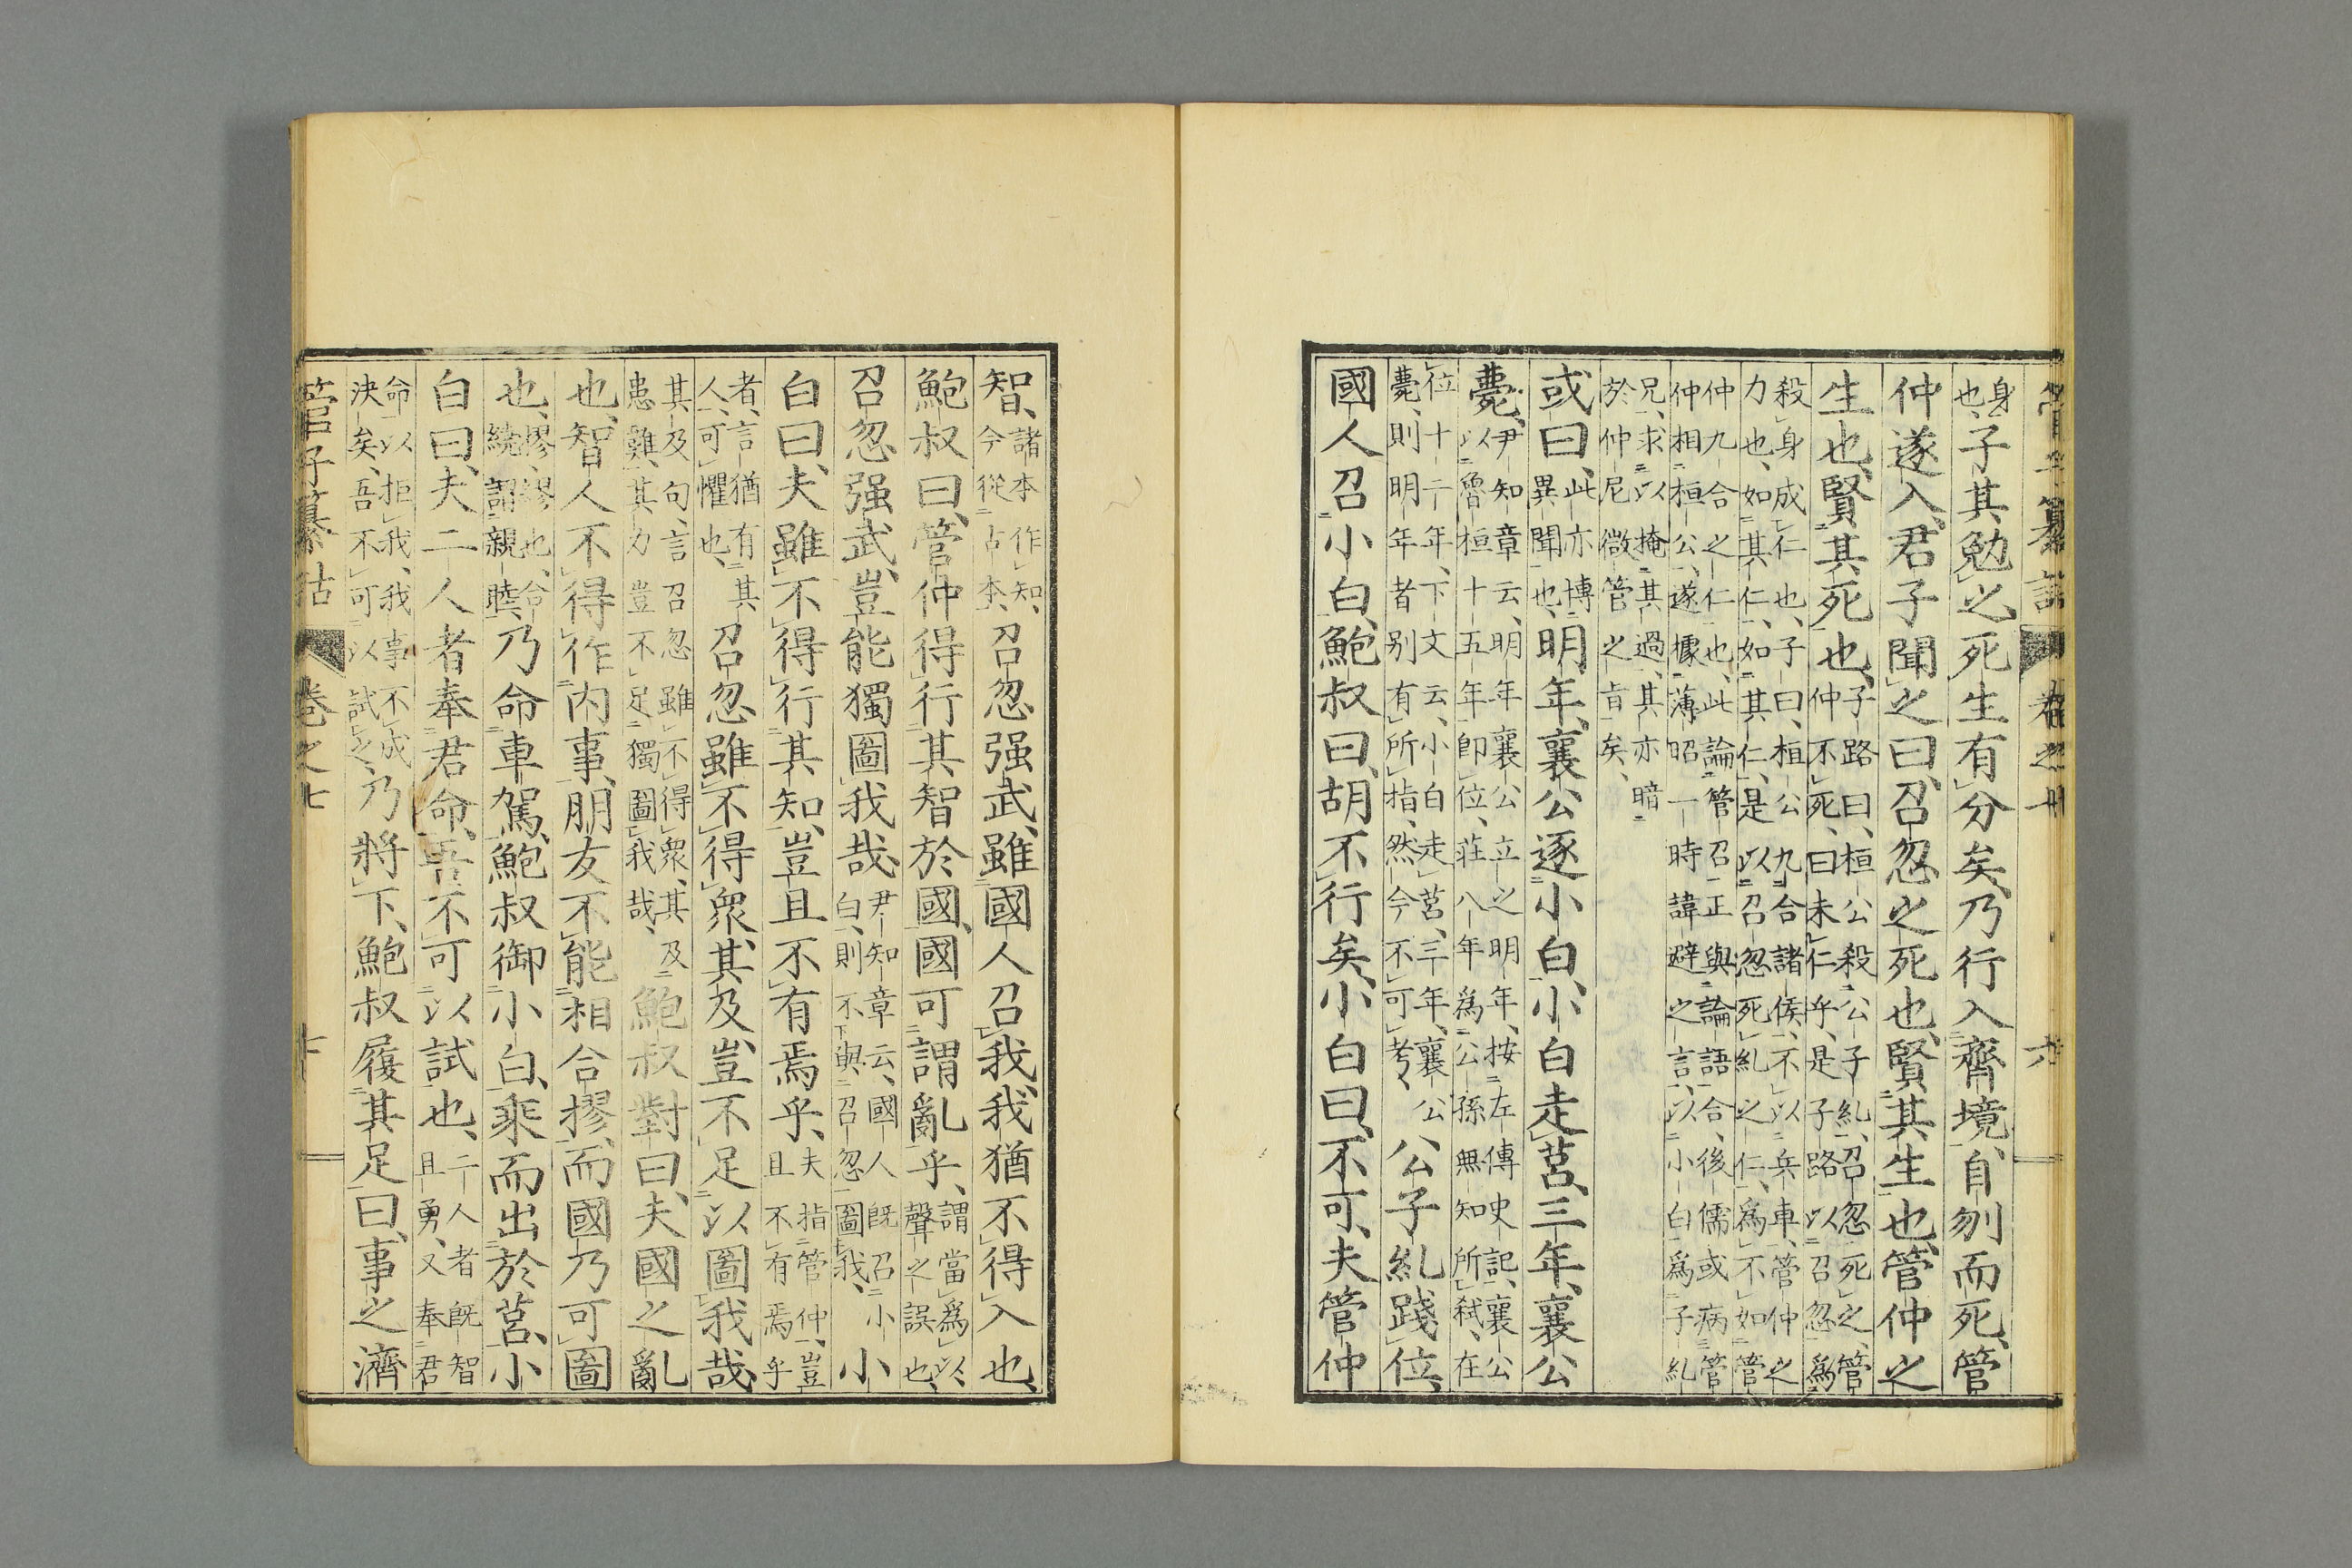 管子纂詁 卷之七 六
身
也、子其勉之、死生有分矣、乃行入齊境、自刎而死、管
仲遂入、君子聞之曰、召忽之死也、賢其生也、管仲之
生也、賢其死也、子路曰、桓公殺公子糺、召忽死之、管
仲不死、曰未仁乎、是子路以召忽爲
殺身成仁也、子曰、桓公九合諸侯、不以兵車、管仲之
力也、如其仁、如其仁、是以召忽死糺之仁、爲不如管
仲九合之仁也、此論管召、正與論語合、後儒或病管
仲相桓公、遂據薄昭一時諱避之言、以小白爲子糺
兄、求以掩其過、其亦暗
於仲尼微管之旨矣、
或曰、此亦博
異聞也、明年、襄公逐小白、小白走莒、三年、襄公
薨、尹知章云、明年襄公立之明年、按左傳史記、襄公
以魯桓十五年卽位、莊八年爲公孫無知所弑、在
位十二年、下文云、小白走莒、三年、襄公
薨、則明年者別有所指、然今不可考、公子糺踐位、
國人召小白、鮑叔曰、胡不行矣、小白曰、不可、夫管仲
智、諸本作知、
今從古本、召忽强武、雖國人召我、我猶不得入也、
鮑叔曰、管仲得行其智於國、國可謂亂乎、謂當爲以
聲之誤也、
召忽强武、豈能獨圖我哉、尹知章云、國人旣召小
白、則不與召忽圖我、小
白曰、夫雖不得行其知、豈且不有焉乎、夫指管仲、豈
且不有焉乎
者、言猶有其
人、可懼也、召忽雖不得衆、其及豈不足以圖我哉、
其及句、言召忽雖不得衆、其及
患難、其力豈不足獨圖我哉、鮑叔對曰、夫國之亂
也、智人不得作內事、朋友不能相合摎、而國乃可圖
也、摎、繆也、合
繞、謂親睦、乃命車駕、鮑叔御小白、乘而出於莒、小
白曰、夫二人者奉君命、吾不可以試也、二人者旣智
且勇、又奉君
命以拒我、我事不成
決矣、吾不可以試之、乃將下、鮑叔履其足曰、事之濟
管子纂詁 卷之七